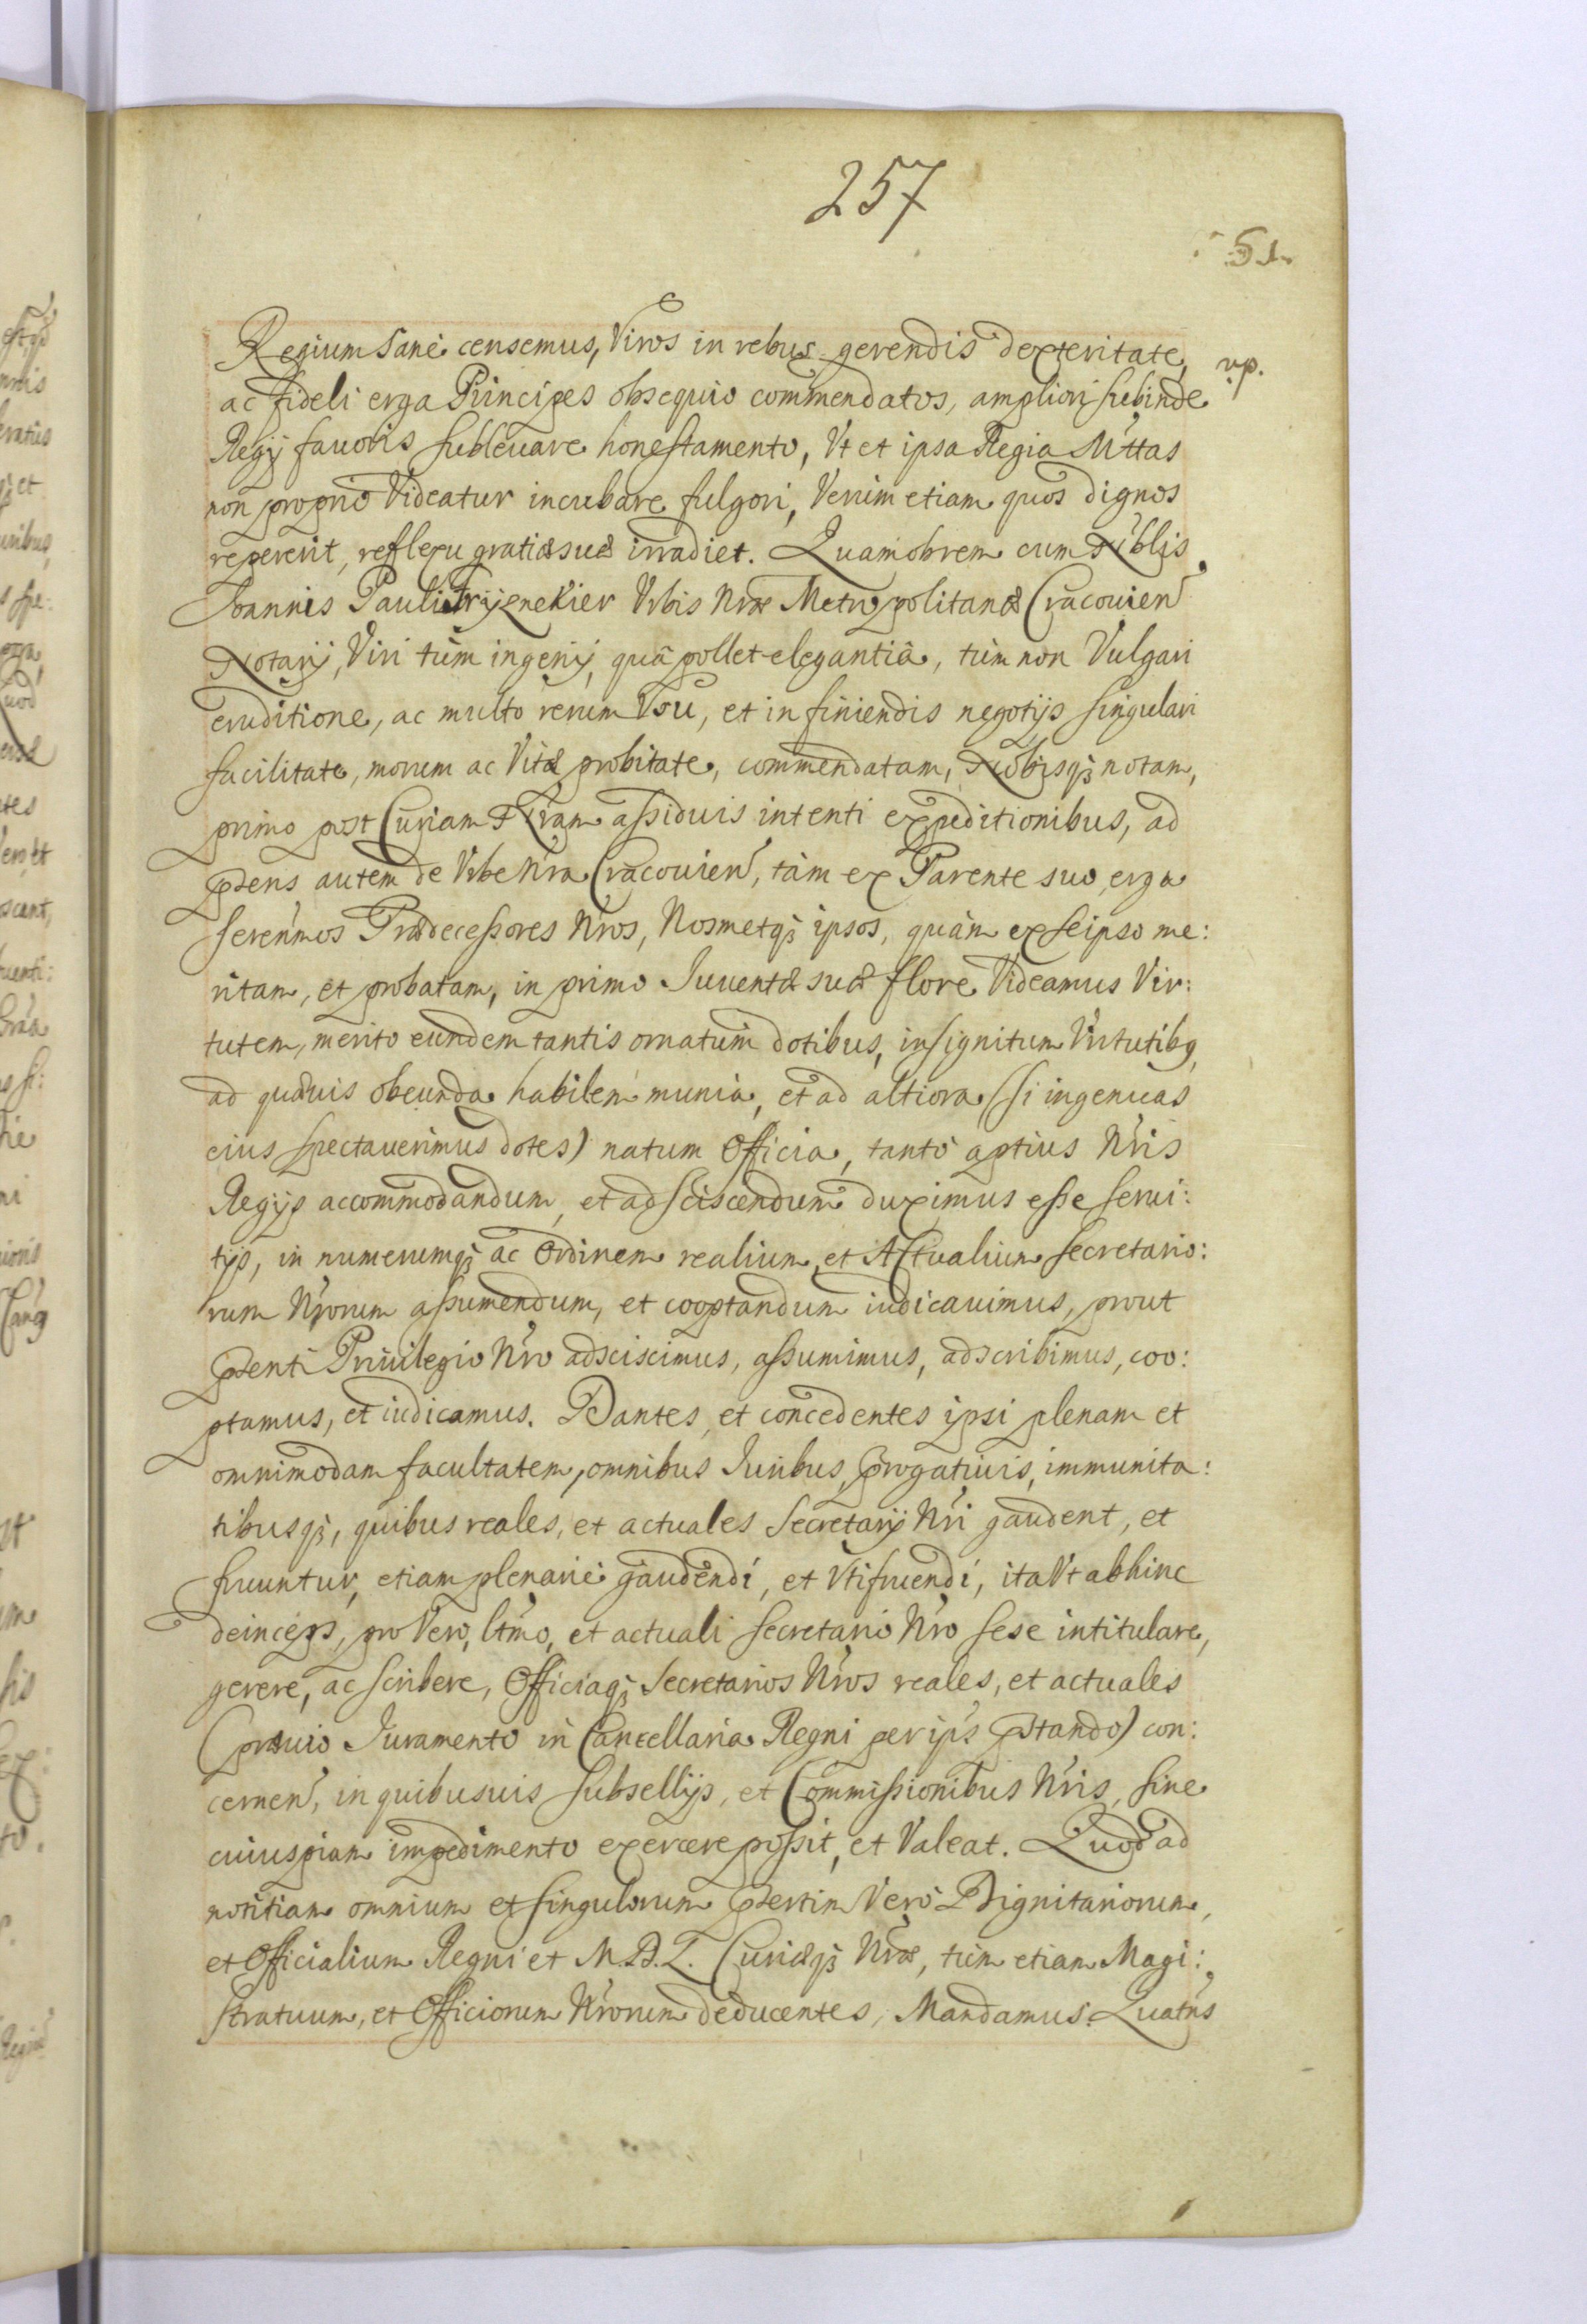 257
51.
Regium sanè censemus, Viros in rebus gerendis dexteritate,
vp.
ac fideli erga Principes obsequio commendatos, ampliori subinde
Regij fauoris subleuare honestamento, Vt et ipsa Regia Mttas
non proprio Videatur incubare fulgori, Verùm etiam quos dignos
repererit, reflexu gratiæ suæ irradiet. Quamobrem cum Noblis
Joannis Pauli Vrbis Nræ Metropolitanæ Cracouien
Notarij, Viri tùm ingenij, quâ pollet elegantiâ, tùm non Vulgari
eruditione, ac multo rerum Vsu, et in finiendis negotijs singulari
facilitate, morum ac Vitæ probitate, commendatam, Nobisq3 notam,
primo post Curiam Nram assiduis intenti expeditionibus, ad
pñens autem de Vrbe Nra Cracouien, tàm ex Parente suo, erga
serenmos Prædecessores Nros, Nosmetq3 ipsos, quàm ex seipso me:
ritam, et probatam, in primo Juuentæ suæ flore Videamus Vir:
tutem, merito eundem tantis ornatum dotibus, insignitum Virtutibq,
ad quæuis obeunda habilem munia, et ad altiora (si ingenuas
eius spectauerimus dotes) natum Officia, tantò aptius Nris
Regijs accommodandum, et adsciscendum duximus esse serui:
tijs, in numerumq3 ac Ordinem realium, et Actualium secretario:
rum Nrorum assumendum, et cooptandum iudicauimus, prout
pñenti Priuilegio Nro adsciscimus, assumimus, adscribimus, coo:
ptamus, et iudicamus. Dantes, et concedentes ipsi plenam et
omnimodam facultatem, omnibus Juribus, progatiuis, immunita:
tibusq3, quibus reales, et actuales Secretarij Nri gaudent, et
fruuntur, etiam plenariè gaudendi, et Vtifruendi, ita Vt abhinc
deinceps, pro Vero, ltmo, et actuali secretario Nro sese intitulare,
gerere, ac scribere, Officiaq3 Secretarios Nros reales, et actuales
(præuio Juramento in Cancellaria Regni per ips pstando) con:
cernen, in quibusuis subsellijs, et Commissionibus Nris, sine
cuiuspiam impedimento exercere possit, et Valeat. Quod ad
notitiam omnium et singulorum psertim Verò Dignitariorum,
et Officialium Regni et M.D.L. Curiæq3 Nræ, tùm etiam Magi:
stratuum, et Officiorum Nrorum deducentes, Mandamus. Quatns